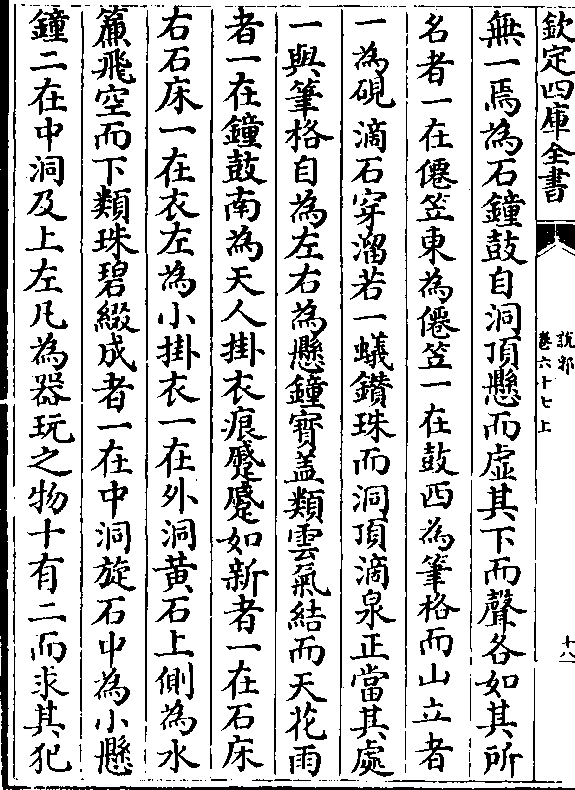 欽定四庫全書
說郛
卷六十七上
十八
無一焉為石鐘鼓自洞頂懸而虛其下而聲各如其所
名者一在僊笠東為僊笠一在鼓西為筆格而山立者
一為硯滴石穿溜若一蟻鑽珠而洞頂滴泉正當其處
一與筆格自為左右為懸鐘寶盖類雲氣結而天花雨
者一在鐘鼓南為天人掛衣痕蹙蹙如新者一在石床
右石床一在衣左為小掛衣一在外洞黄石上側為水
簾飛空而下類珠碧綴成者一在中洞旋石中為小懸
鐘二在中洞及上左凡為器玩之物十有二而求其犯